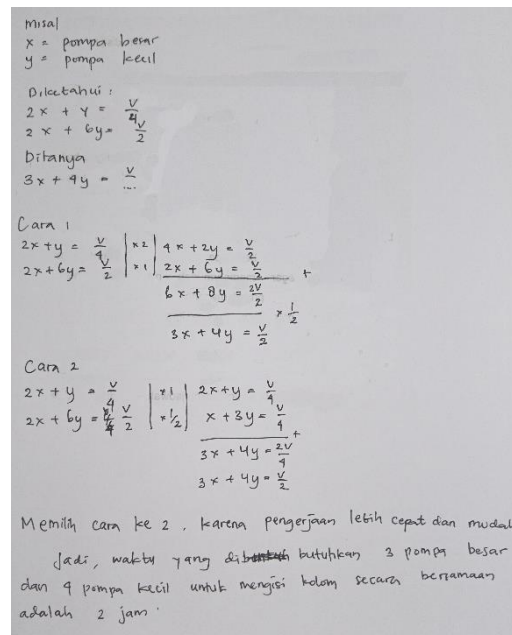 misal
x = pompa besar
y = pompa kecil
Diketahui :
2x + y = V/4
2x + 6y = V/2
Ditanya
3x + 4y = V/...
Cara 1
2x + y = V/4 | x2 | 4x + 2y = V/2
2x + 6y = V/2 | x1 | 2x + 6y = V/2 +
6x + 8y = 2V/2
x 1/2
3x + 4y = V/2
Cara 2
2x + y = V/4 | x1 | 2x + y = V/4
2x + 6y = V/2 | x 1/2 | x + 3y = V/4 +
3x + 4y = 2V/4
3x + 4y = V/2
Memilih cara ke 2 , karena pengerjaan lebih cepat dan mudah
Jadi, waktu yang di butuhkan 3 pompa besar
dan 4 pompa kecil untuk mengisi kolom secara bersamaan
adalah 2 jam .